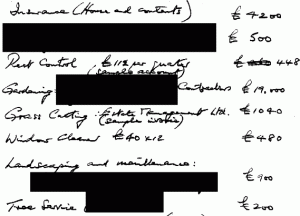 Insurance (House and contents) £ 4200
£ 500
Pest Control £112 per quarter £ 448
(sample account)
Gardening: Contractors £ 19,000
Grass Cutting: Estate Management Ltd. £ 1040
(sample invoice)
Window Cleaner £40 x 12 £ 480
Landscaping and maintenance:
£ 900
Tree Service £ 200